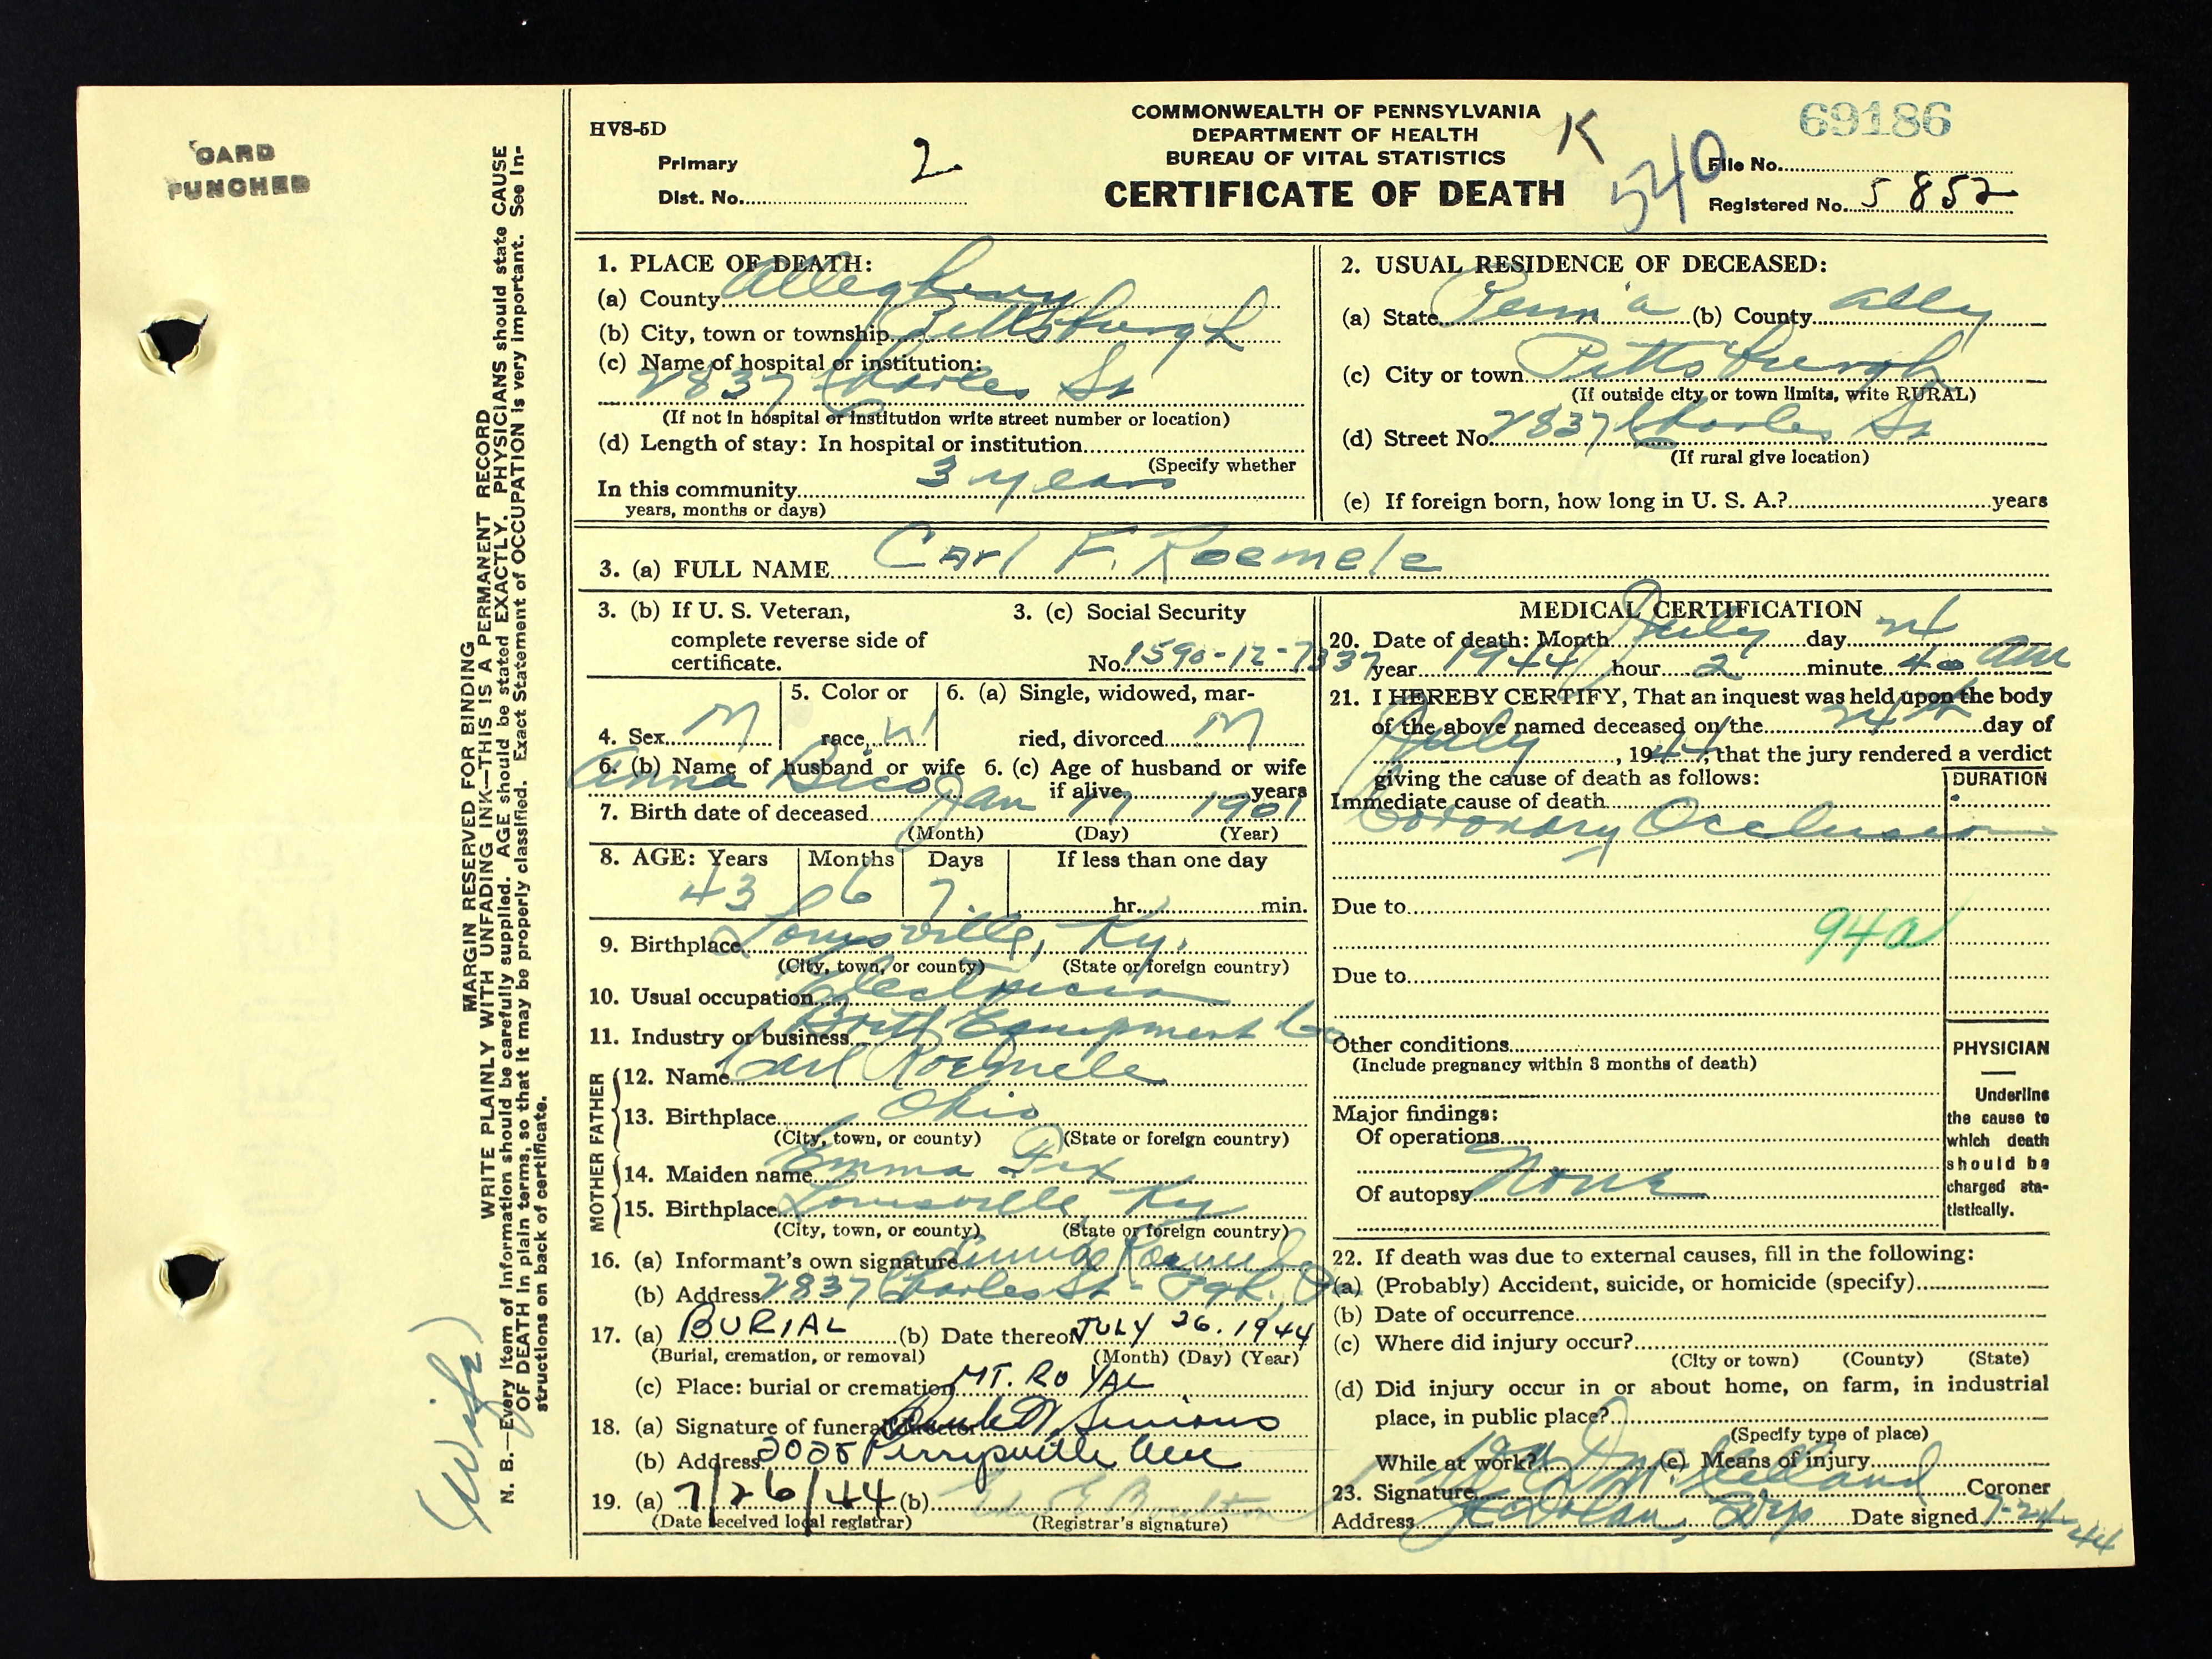 CARD
PUNCHED
MARGIN RESERVED FOR BINDING
WRITE PLAINLY WITH UNFADING INK—THIS IS A PERMANENT RECORD
N. B.—Every item of information should be carefully supplied. AGE should be stated EXACTLY. PHYSICIANS should state CAUSE
OF DEATH in plain terms, so that it may be properly classified. Exact Statement of OCCUPATION is very important. See In-
structions on back of certificate.
(Wife)
HVS-5D
Primary
Dist. No. 2
COMMONWEALTH OF PENNSYLVANIA
DEPARTMENT OF HEALTH
BUREAU OF VITAL STATISTICS
CERTIFICATE OF DEATH
K
540
69186
File No.
Registered No. 5852
1. PLACE OF DEATH:
(a) County Allegheny
(b) City, town or township Pittsburgh
(c) Name of hospital or institution:
2837 Charles St
(If not in hospital or institution write street number or location)
(d) Length of stay: In hospital or institution
(Specify whether
In this community 3 years
years, months or days)
2. USUAL RESIDENCE OF DECEASED:
(a) State Penn'a (b) County Ally
(c) City or town Pittsburgh
(If outside city or town limits, write RURAL)
(d) Street No. 2837 Charles St
(If rural give location)
(e) If foreign born, how long in U. S. A.? years
3. (a) FULL NAME Carl F. Roemele
3. (b) If U. S. Veteran,
complete reverse side of
certificate.
3. (c) Social Security
No. 1590-12-7337
4. Sex M
5. Color or
race W
6. (a) Single, widowed, mar-
ried, divorced M
6. (b) Name of husband or wife
Anna
6. (c) Age of husband or wife
if alive years
7. Birth date of deceased Jan 17 1901
(Month) (Day) (Year)
8. AGE: Years Months Days If less than one day
43 6 7 hr. min.
9. Birthplace Louisville, Ky.
(City, town, or county) (State or foreign country)
10. Usual occupation Electrician
11. Industry or business Equipment Co
FATHER
12. Name Carl Roemele
13. Birthplace Ohio
(City, town, or county) (State or foreign country)
MOTHER
14. Maiden name Emma Fix
15. Birthplace Louisville Ky
(City, town, or county) (State or foreign country)
16. (a) Informant's own signature Roemele
(b) Address 2837 Charles St - Pgh. Pa
17. (a) BURIAL (b) Date thereof JULY 26. 1944
(Burial, cremation, or removal) (Month) (Day) (Year)
(c) Place: burial or cremation MT. ROYAL
18. (a) Signature of funeral director Simons
(b) Address 2025 Perrysville Ave
19. (a) 7/26/44 (b)
(Date received local registrar) (Registrar's signature)
MEDICAL CERTIFICATION
20. Date of death: Month July day 24
year 1944 hour 2 minute 40 am
21. I HEREBY CERTIFY, That an inquest was held upon the body
of the above named deceased on the 24th day of
July, 1944, that the jury rendered a verdict
giving the cause of death as follows:
DURATION
Immediate cause of death
Coronary Occlusion
Due to
94a
Due to
Other conditions
(Include pregnancy within 3 months of death)
Major findings:
Of operations
Of autopsy None
PHYSICIAN
Underline
the cause to
which death
should be
charged sta-
tistically.
22. If death was due to external causes, fill in the following:
(a) (Probably) Accident, suicide, or homicide (specify)
(b) Date of occurrence
(c) Where did injury occur?
(City or town) (County) (State)
(d) Did injury occur in or about home, on farm, in industrial
place, in public place?
(Specify type of place)
While at work? (e) Means of injury
23. Signature McClelland Coroner
Address Date signed 7-24-44